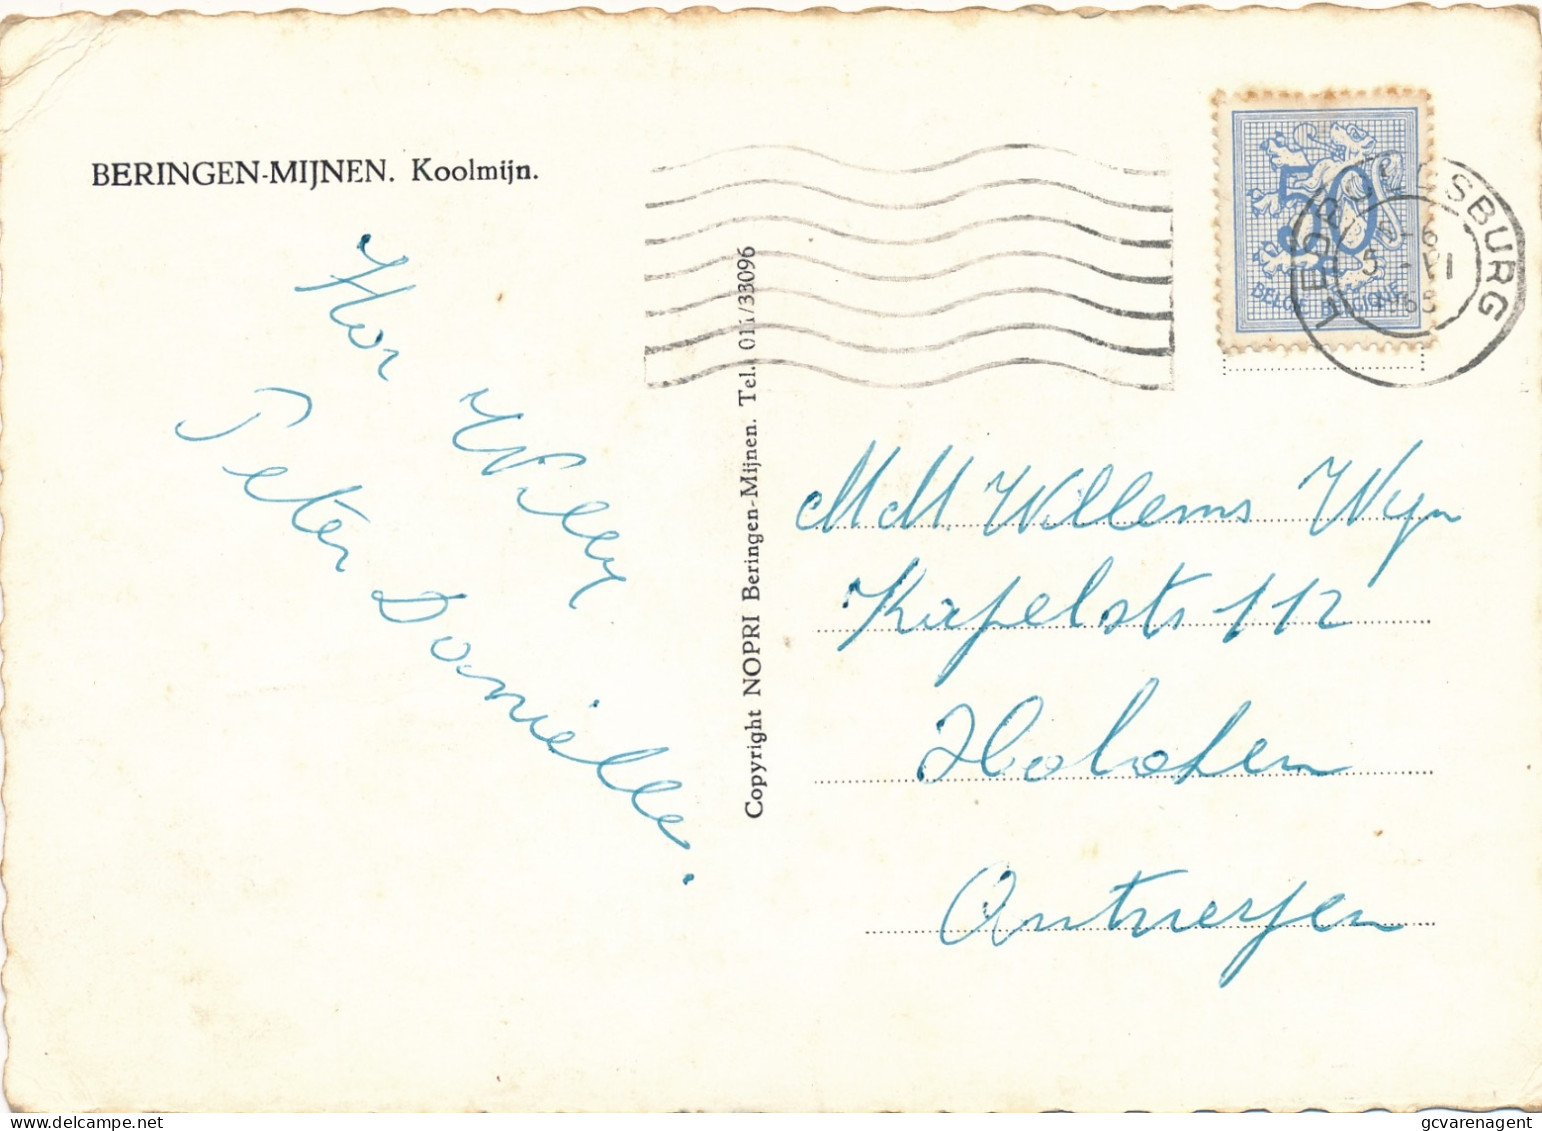 BERINGEN-MIJNEN. Koolmijn.
Hor Willy
Peter Danielle.
Copyright NOPRI Beringen-Mijnen. Tel. 011/33096
50
BELGIE BELGIQUE
SBURG
MM Willems Wyn
Kapelsts 112
Hoboken
Antwerpen
delcampe.net
gcvarenagent